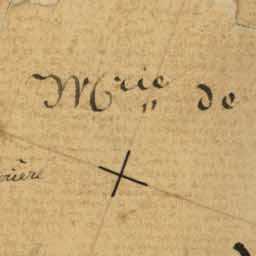 M^rie de
vière